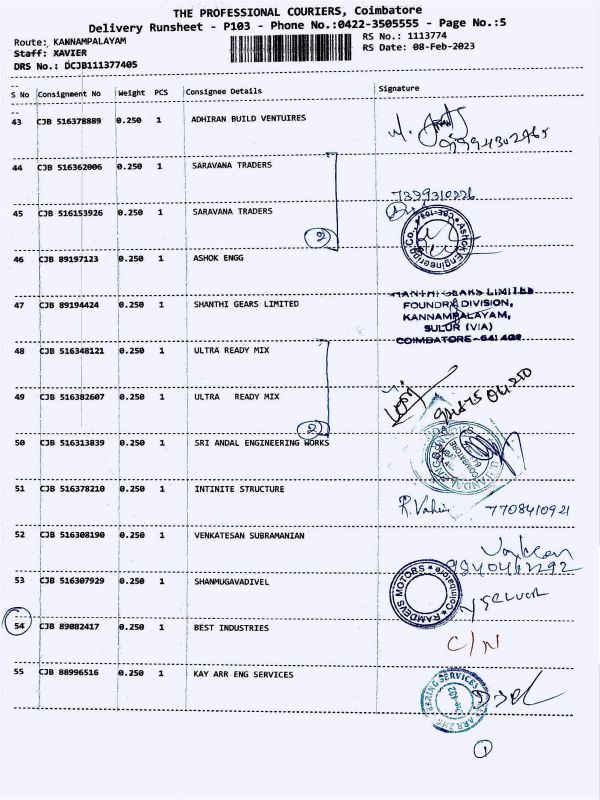 THE PROFESSIONAL COURIERS, Coimbatore
Delivery Runsheet - P103 - Phone No.:0422-3505555 - Page No.:5
Route: KANNAMPALAYAM
RS No.: 1113774
Staff: XAVIER
RS Date: 08-Feb-2023
DRS No.: DCJB111377405
S No Consignment No Weight PCS Consignee Details Signature
43 CJB 516378889 0.250 1 ADHIRAN BUILD VENTUIRES
44 CJB 516362006 0.250 1 SARAVANA TRADERS
7339310226
45 CJB 516153926 0.250 1 SARAVANA TRADERS
2
Ashok Engineering Co.,
46 CJB 89197123 0.250 1 ASHOK ENGG
47 CJB 89194424 0.250 1 SHANTHI GEARS LIMITED
SHANTHI GEARS LIMITED
FOUNDRY DIVISION,
KANNAMPALAYAM,
SULUR (VIA)
COIMBATORE-641 402
48 CJB 516348121 0.250 1 ULTRA READY MIX
49 CJB 516382607 0.250 1 ULTRA READY MIX
2
50 CJB 516313839 0.250 1 SRI ANDAL ENGINEERING WORKS
51 CJB 516378210 0.250 1 INTINITE STRUCTURE
7708410921
52 CJB 516308190 0.250 1 VENKATESAN SUBRAMANIAN
53 CJB 516307929 0.250 1 SHANMUGAVADIVEL
RAMDEVS MOTORS * Coimbatore
54 CJB 89082417 0.250 1 BEST INDUSTRIES
C/N
55 CJB 88996516 0.250 1 KAY ARR ENG SERVICES
1